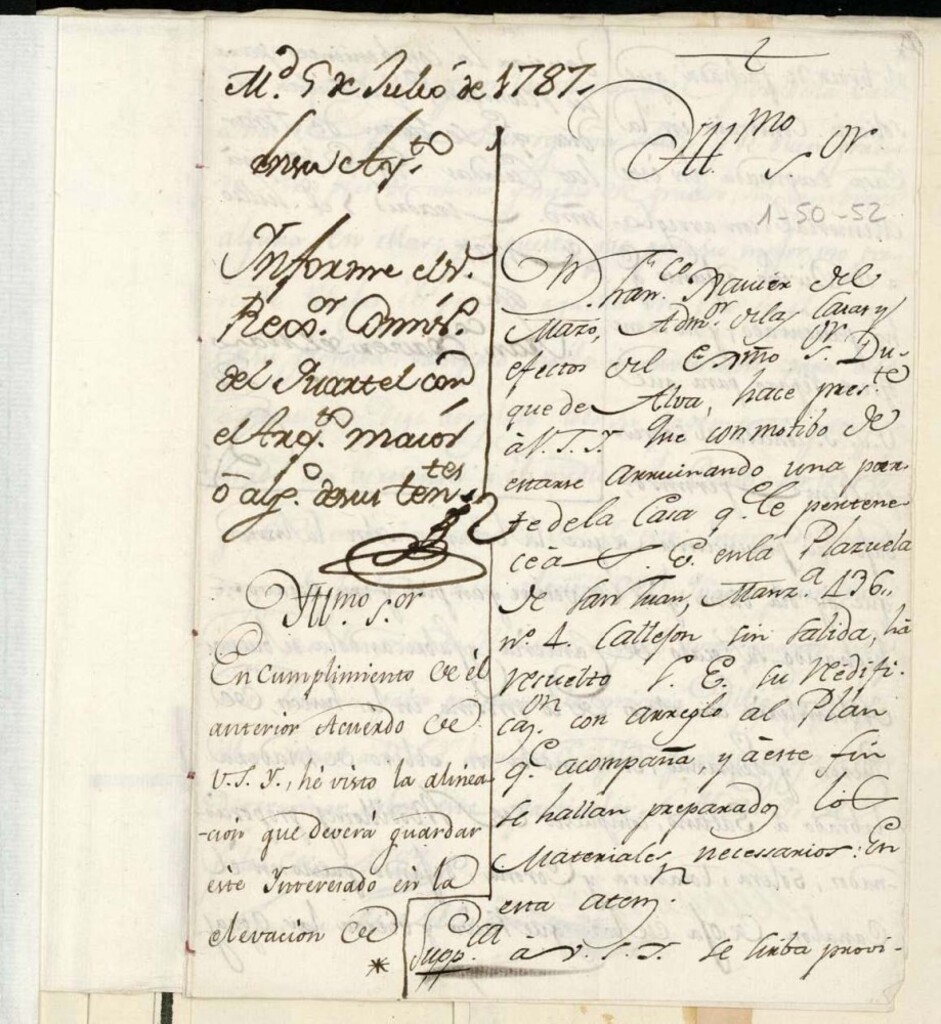 M.d 5 de Julio de 1787.
en su Ay.to
Informe el S.r
Reg.or Comis.o
del Quartel con
el Arq.to maior
ò alg.o de sus ten.tes
Ill.mo S.or
En cumplimiento de el
anterior Acuerdo de
V.S.Y., he visto la alinea
-cion que deverá guardar
este Interesado en la
elevacion de
*
Ill.mo S.or
1-50-52
D.n Fran.co Xavier del
Mazo, Adm.or de las Casas y
efectos del Exmo S.or Du-
que de Alva, hace pres.te
à V.S.Y. que con motibo de
estarse arruinando una par-
te de la Casa q.e le pertene-
ce à S. E. en la Plazuela
de San Juan, Manz.a 436,,
n.o 4. Callejon sin salida, há
resuelto S. E. su reedifi-
caz.on con arreglo al Plan
q.e acompaña y à este fin
se hallan preparados los
Materiales necessarios: En
esta aten.n
Supp.ca a V.S.Y. se sirba provi-